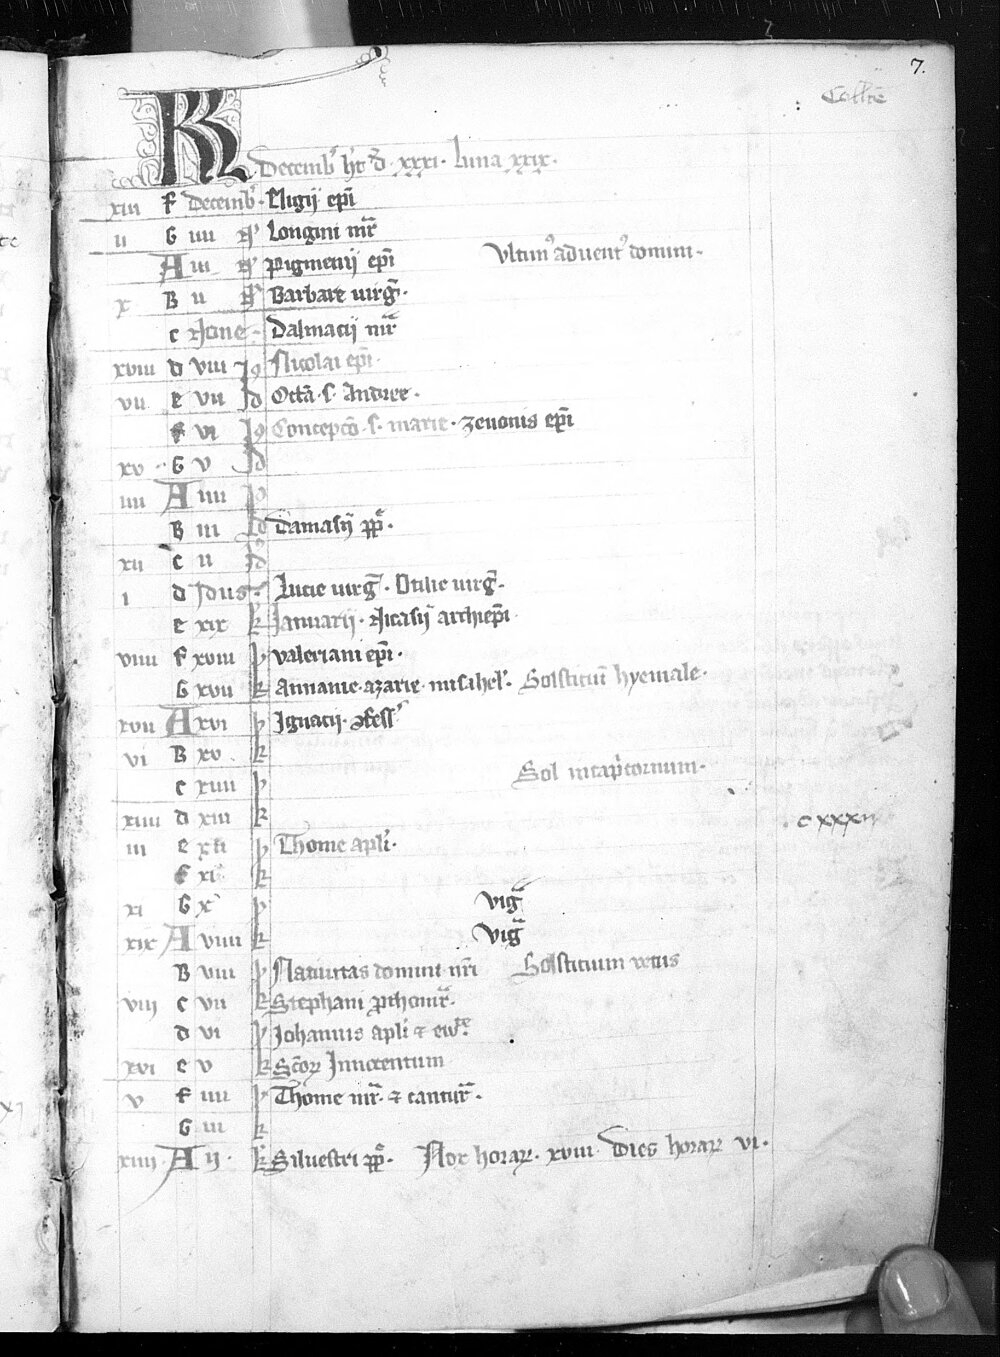 7.
Collcē
KL Decembʼ hʼt d̾ xxxi. luna xxix.
xiii f Decembʼ. Eligij epī
ii G iiii Nʼ Longini mr̄
A iii Nʼ Pigmenij epī Vltimʼ aduentʼ domini.
x B ii Nʼ Barbare uirḡ.
c None. Dalmacij mr̄
xviii d viii Id Nicolai epī.
vii e vii Id Octā. s. Andree.
f vi Id Concepcō. s. marie. zenonis epī
xv G v Id
iiii A iiii Id
B iii Id Damasij pp̄.
xii c ii Id
i d Idus. Lucie uirḡ. Otilie uirḡ.
e xix k Ianuarij. Nicasij archiepī
viiii f xviii k valeriani epī.
G xvii k Annanie. azarie. misahel. Solsticiū hyemale.
xvii A xvi k Ignacij. ɔfess̄
vi B xv k
c xiiii k Sol in capʼcornium.
xiiii d xiii k . cxxxii
iii e xii k Thome aplī.
f xi k
xi G x k vig̃
xix A viiii k vig̃
B viii k Natiuitas domini nr̄i Solsticium vetus
viii c vii k Stephani ꝓthomr̄.
d vi k Johannis aplī ⁊ ewʼ.
xvi e v k Scōꝝ Innocentum
v f iiii k Thome mr̄. ⁊ cantuʼr.
G iii k
xiiii A ij. k Siluestri pp̄. Nox horaꝝ. xviii. Dies horaꝝ vi.